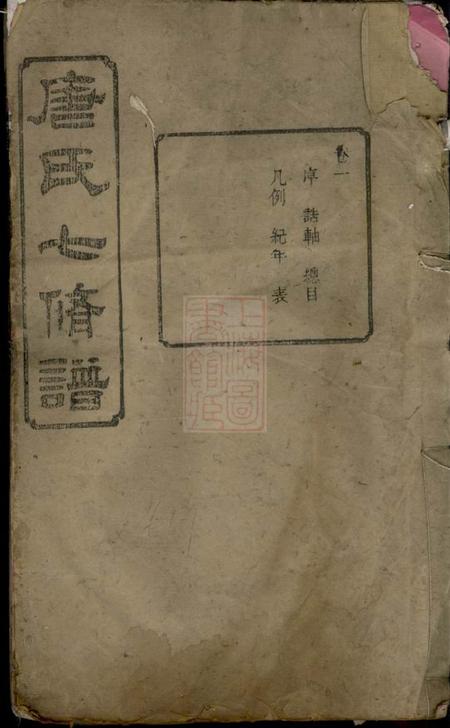 唐氏七脩譜
卷一
序 誥軸 總目
凡例 紀年表
上海圖書館藏